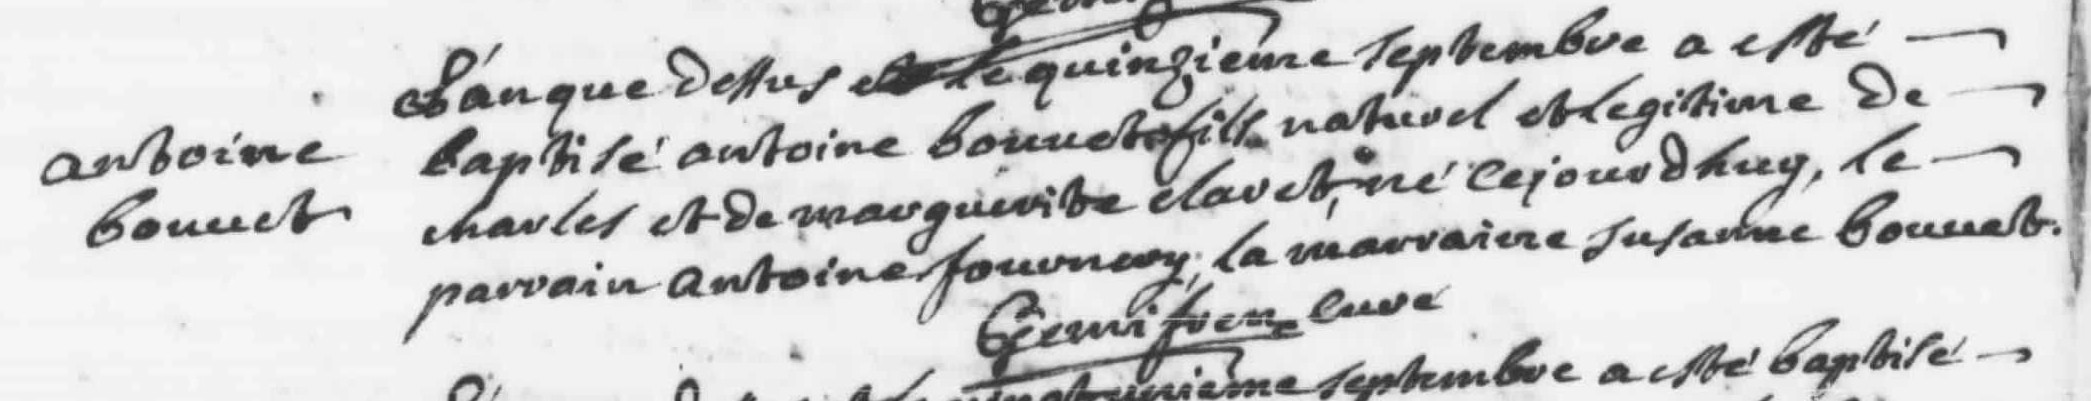 L'an que dessus et le quinzieme septembre a esté
antoine baptisé antoine bouuet fils naturel et legitime de
bouuet charles et de marguerite claret, né cejourdhuy, le
parrain antoine fournery, la marraine susanne bouuet.
curé
septembre a esté baptisé